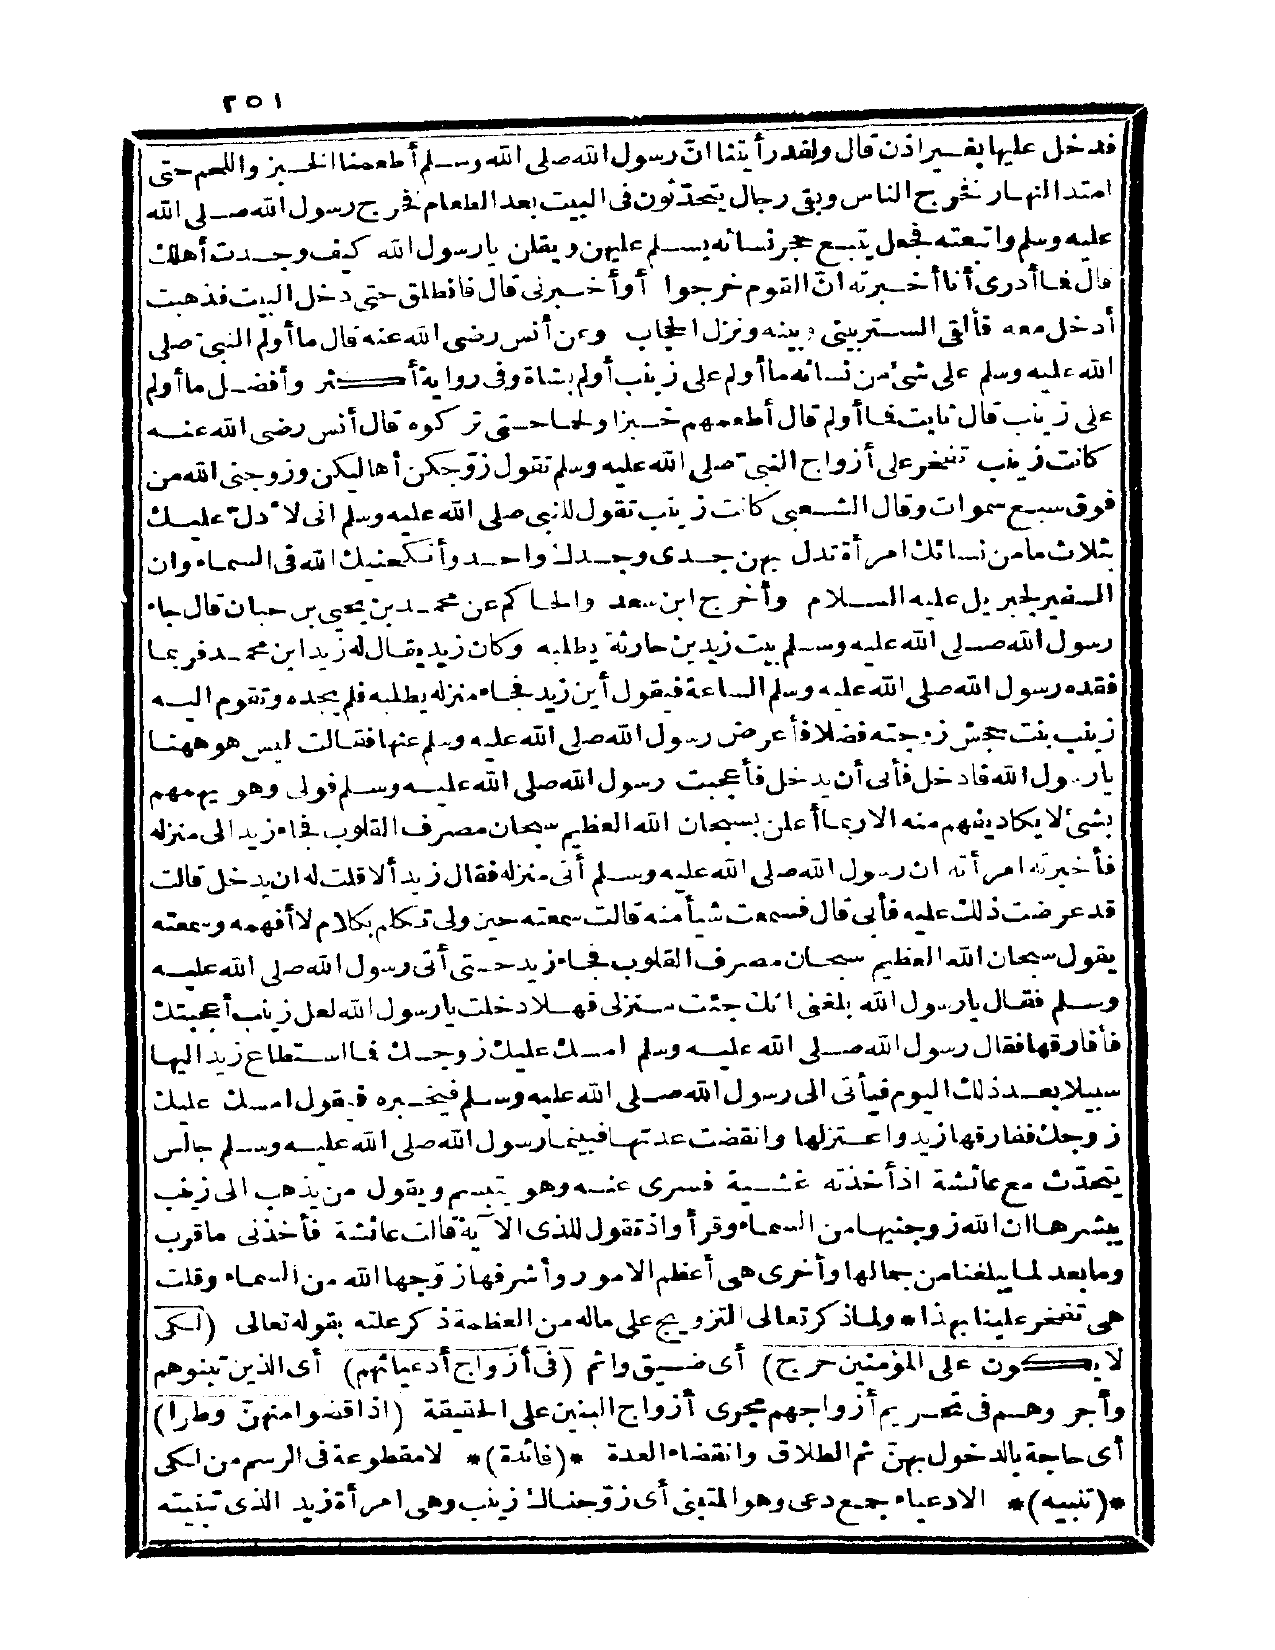 ٢٥١
فدخل عليها بغير اذن قال ولقد رأيتنا انّ رسول الله صلى الله وسلم أطعمنا الخبز واللحم حتى
امتد النهار فخرج الناس وبقى رجال يتحدّثون فى البيت بعد الطعام فخرج رسول الله صلى الله
عليه وسلم واتبعته فجعل يتبع حجر نسائه يسلم عليهن ويقلن يارسول الله كيف وجدت أهلك
قال فما أدرى أنا أخبرته انّ القوم خرجوا أو أخبرنى قال فانطلق حتى دخل البيت فذهبت
أدخل معه فألقى الستر بينى وبينه ونزل الحجاب وعن أنس رضى الله عنه قال ما أولم النبىّ صلى
الله عليه وسلم على شئ من نسائه ما أولم على زينب أولم بشاة وفى رواية أكثر وأفضل ما أولم
على زينب قال ثابت فما أولم قال أطعمهم خبزا ولحما حتى تركوه قال أنس رضى الله عنه
كانت زينب تفخر على أزواج النبىّ صلى الله عليه وسلم تقول زوّجكن أهاليكن وزوجنى الله من
فوق سبع سموات وقال الشعبى كانت زينب تقول للنبى صلى الله عليه وسلم انى لا دلّ عليك
بثلاث مامن نسائك امرأة تدل بهن جدى وجدك واحد وأنكحنيك الله فى السماء وان
السفير لجبريل عليه السلام وأخرج ابن سعد والحاكم عن محمد بن يحيى بن حبان قال جاء
رسول الله صلى الله عليه وسلم بيت زيد بن حارثة يطلبه وكان زيد يقال له زيد ابن محمد فربما
فقده رسول الله صلى الله عليه وسلم الساعة فيقول أين زيد فجاء منزله يطلبه فلم يجده وتقوم اليه
زينب بنت جحش زوجته فضلا فأعرض رسول الله صلى الله عليه وسلم عنها فقالت ليس هو ههنا
يارسول الله فادخل فأبى أن يدخل فأعجبت رسول الله صلى الله عليه وسلم فولى وهو يهمهم
بشئ لا يكاد يفهم منه الا ربما أعلن بسبحان الله العظيم سبحان مصرف القلوب فجاء زيد الى منزله
فأخبرته امرأته ان رسول الله صلى الله عليه وسلم أتى منزله فقال زيد ألا قلت له ان يدخل قالت
قد عرضت ذلك عليه فأبى قال فسمعت شيأ منه قالت سمعته حين ولى تكلم بكلام لا أفهمه وسمعته
يقول سبحان الله العظيم سبحان مصرف القلوب فجاء زيد حتى أتى رسول الله صلى الله عليه
وسلم فقال يارسول الله بلغنى انك جئت منزلى فهلا دخلت يارسول الله لعل زينب أعجبتك
فأفارقها فقال رسول الله صلى الله عليه وسلم امسك عليك زوجك فما استطاع زيد اليها
سبيلا بعد ذلك اليوم فيأتى الى رسول الله صلى الله عليه وسلم فيخبره فيقول امسك عليك
زوجك ففارقها زيد واعتزلها وانقضت عدتها فبينما رسول الله صلى الله عليه وسلم جالس
يتحدّث مع عائشة اذ أخذته غشية فسرى عنه وهو يتبسم ويقول من يذهب الى زينب
يبشرها ان الله زوجنيها من السماء وقرأ واذ تقول للذى الآية قالت عائشة فأخذنى ماقرب
وما بعد لما يبلغنا من جمالها وأخرى هى أعظم الامور وأشرفها زوّجها الله من السماء وقلت
هى تفخر علينا بهذا * ولما ذكر تعالى التزويج على ماله من العظمة ذكر علته بقوله تعالى (لكى
لا يكون على المؤمنين حرج) أى ضيق واثم (فى أزواج أدعيائهم) أى الذين تبنوهم
وأجروهم فى تحريم أزواجهم مجرى أزواج البنين على الحقيقة (اذا قضوا منهنّ وطرا)
أى حاجة بالدخول بهنّ ثم الطلاق وانقضاء العدة *(فائدة)* لا مقطوعة فى الرسم من لكى
*(تنبيه)* الادعياء جمع دعى وهو المتبنى أى زوّجناك زينب وهى امرأة زيد الذى تبنيته